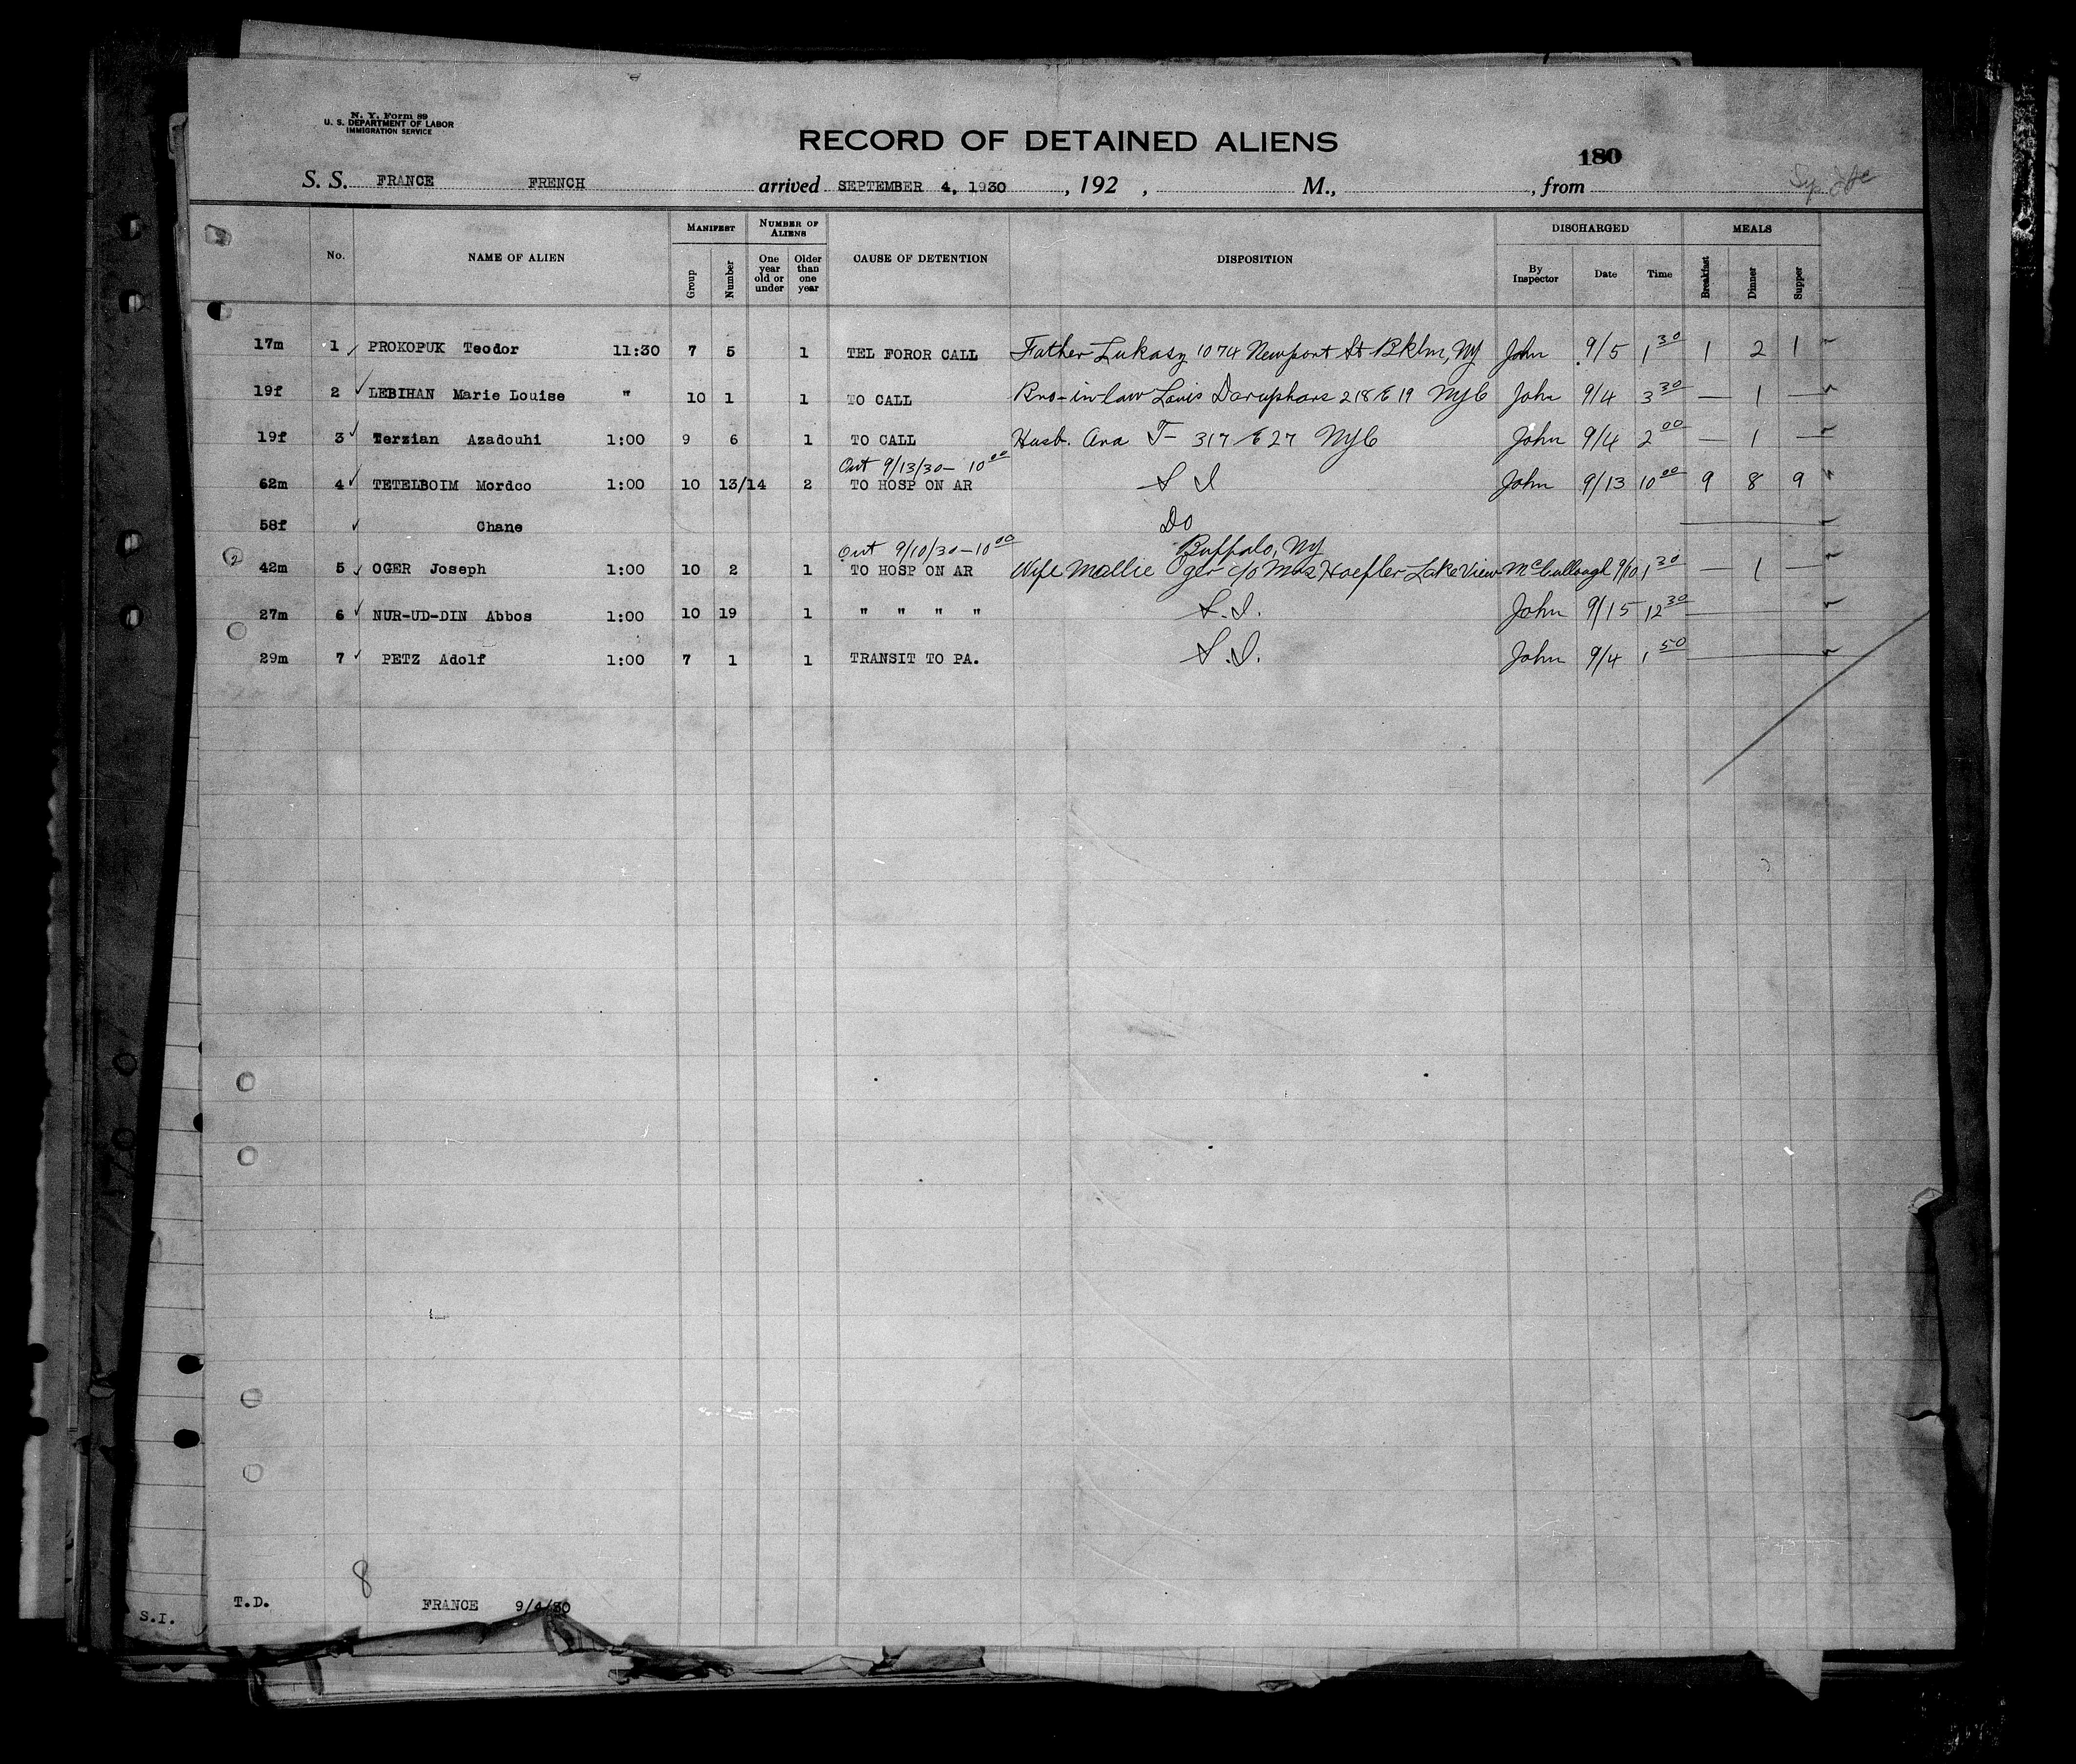 N. Y. Form 89
U. S. DEPARTMENT OF LABOR
IMMIGRATION SERVICE
RECORD OF DETAINED ALIENS
180
S. S. FRANCE FRENCH arrived SEPTEMBER 4, 1930, 192 , M., , from
No. NAME OF ALIEN MANIFEST Group Number NUMBER OF ALIENS One year old or under Older than one year CAUSE OF DETENTION DISPOSITION DISCHARGED By Inspector Date Time MEALS Breakfast Dinner Supper
17m 1 PROKOPUK Teodor 11:30 7 5 1 TEL FOROR CALL Father Lukasz 1074 Newport St Bklm, NY John 9/5 1 30 1 2 1
19f 2 LEBIHAN Marie Louise " 10 1 1 TO CALL Bro-in-law Louis 218 E 19 NYC John 9/4 3 30 — 1 —
19f 3 Terzian Azadouhi 1:00 9 6 1 TO CALL Husb. Ara T- 317 E 27 NYC John 9/4 2 00 — 1 —
Out 9/13/30 - 10 00
62m 4 TETELBOIM Mordco 1:00 10 13/14 2 TO HOSP ON AR S I John 9/13 10 00 9 8 9
58f Chane Do
Out 9/10/30 - 10 00 Buffalo, NY
42m 5 OGER Joseph 1:00 10 2 1 TO HOSP ON AR Wife Mollie Oger c/o Mrs Hoefler Lake View McCullough 9/10 1 30 — 1 —
27m 6 NUR-UD-DIN Abbos 1:00 10 19 1 " " " " S.I. John 9/15 12 30
29m 7 PETZ Adolf 1:00 7 1 1 TRANSIT TO PA. S.I. John 9/4 1 50
8
T.D. FRANCE 9/4/30
S.I.